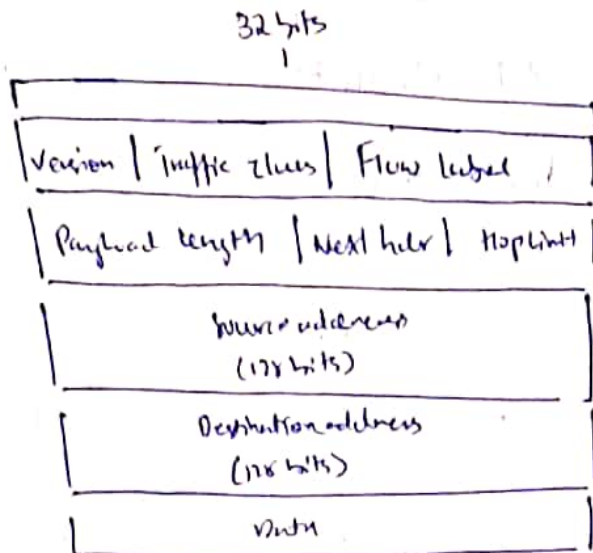 32 bits
Version | Traffic class | Flow label
Payload length | Next hdr | Hop limit
Source address
(128 bits)
Destination address
(128 bits)
Data